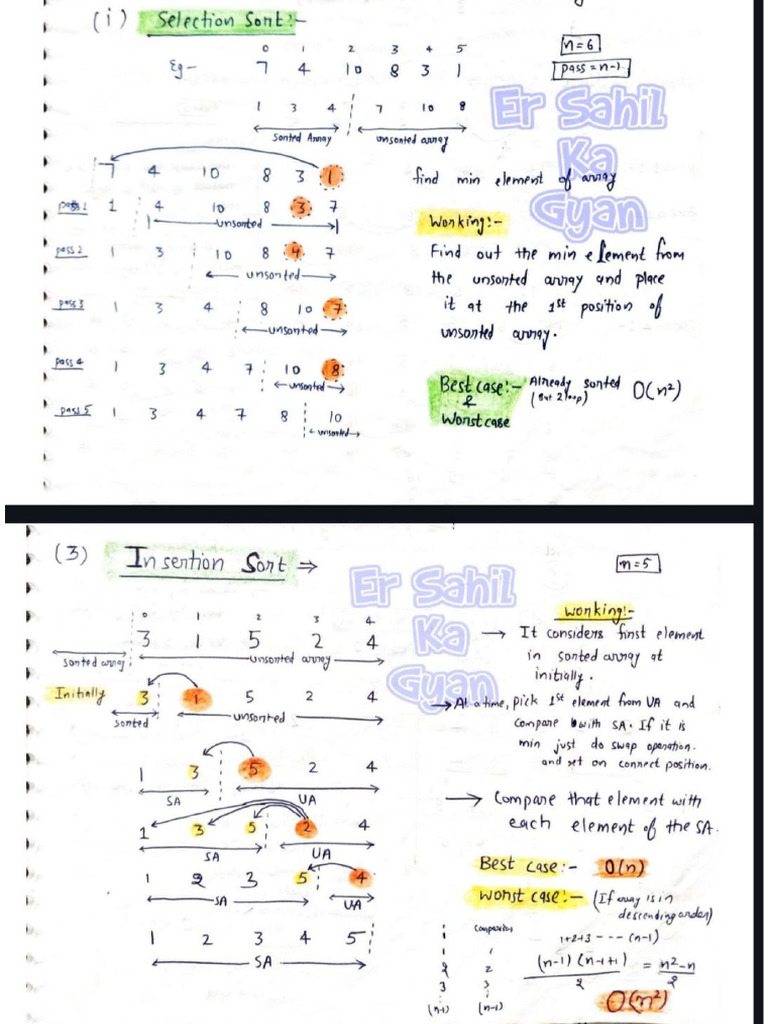 (i) Selection Sort:-
0 1 2 3 4 5
Eg- 7 4 10 8 3 1
n=6
pass=n-1
1 3 4 7 10 8
Sorted Array unsorted array
Er Sahil
Ka
Gyan
7 4 10 8 3 1
find min element of array
pass 1 1 4 10 8 3 7
unsorted
Working:-
pass 2 1 3 10 8 4 7
unsorted
Find out the min element from
the unsorted array and place
it at the 1st position of
unsorted array.
pass 3 1 3 4 8 10 7
unsorted
pass 4 1 3 4 7 10 8
unsorted
Best case:- Already sorted O(n²)
& (But 2 loop)
Worst case
pass 5 1 3 4 7 8 10
unsorted
(3) Insertion Sort ⇒
n=5
Er Sahil
Ka
Gyan
0 1 2 3 4
3 1 5 2 4
sorted array unsorted array
Working:-
→ It considers first element
in sorted array at
initially.
Initially 3 1 5 2 4
sorted unsorted
→ At a time, pick 1st element from UA and
compare with SA. If it is
min just do swap operation.
and set on correct position.
1 3 5 2 4
SA UA
→ Compare that element with
each element of the SA.
1 3 5 2 4
SA UA
Best case:- O(n)
Worst case:- (If array is in
descending order)
1 2 3 5 4
SA UA
1 2 3 4 5
SA
Comparision
1
2 2
3 3
(n-1) (n-1)
1+2+3 ---- (n-1)
(n-1) (n-1+1) / 2 = n²-n / 2
O(n²)